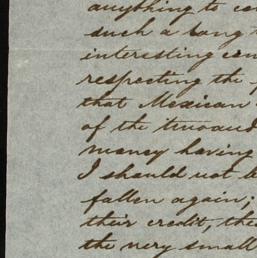 anything to co
such a long
interesting con
respecting the
that Mexican
of the thousand
money having
I should not be
fallen again;
their credit, the
the very small